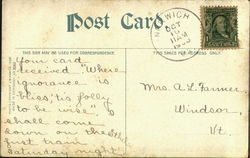 Post Card
NORWICH
OCT
11 AM
THIS SIDE MAY BE USED FOR CORRESPONDENCE.
THIS SIDE IS FOR THE ADDRESS ONLY.
Your card
received "Where
ignorance is
bliss, 'tis folly
to be wise." I
shall come
down on the
first train
Saturday night
Mrs. A. L. Farmer
Windsor
Vt.